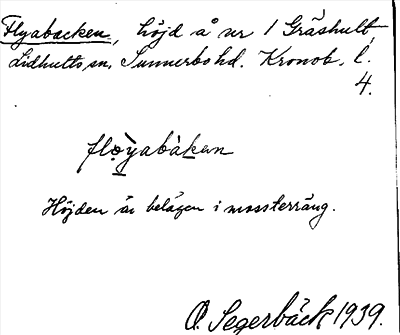 Flyabacken, höjd å nr 1 Gräshult,
Lidhults sn, Sunnerbo hd. Kronob. l.
4.
fløyabàkan
Höjden är belägen i mossterräng.
O. Segerbäck 1939.